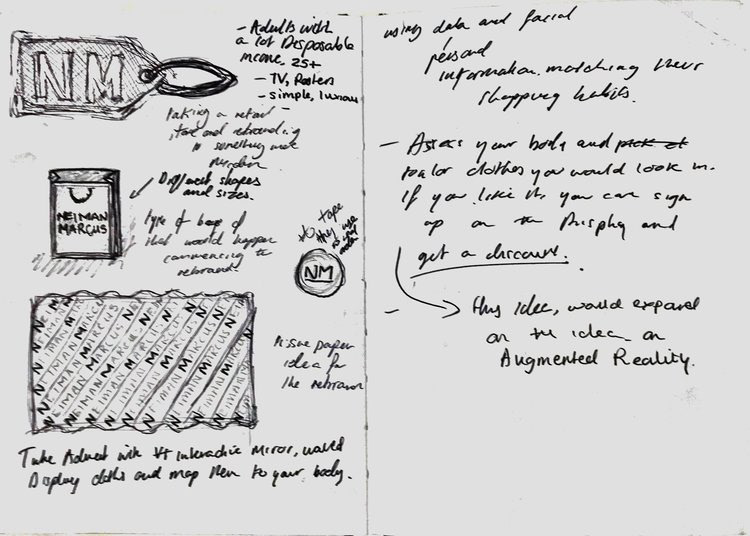 NM
- Adults with
a lot Disposable
income, 25+
- TV, Posters
- simple,
Taking a retail
store and rebranding
to something more
modern
NEIMAN
MARCUS
Different shapes
and sizes.
type of bag
that would happen
commencing to
rebrand
tape
NM
NEIMAN MARCUS
Tissue paper
idea for
the rebrand
Take Advert with interactive Mirror, would
Display cloths and map them to your body.
using data and facial
personal
information. matching there
shopping habits.
- Assess your body and
tailor clothes you would look in.
If you like it, you can sign
up on the Display and
get a discount.
- this idea, would expand
on the idea on
Augmented Reality.